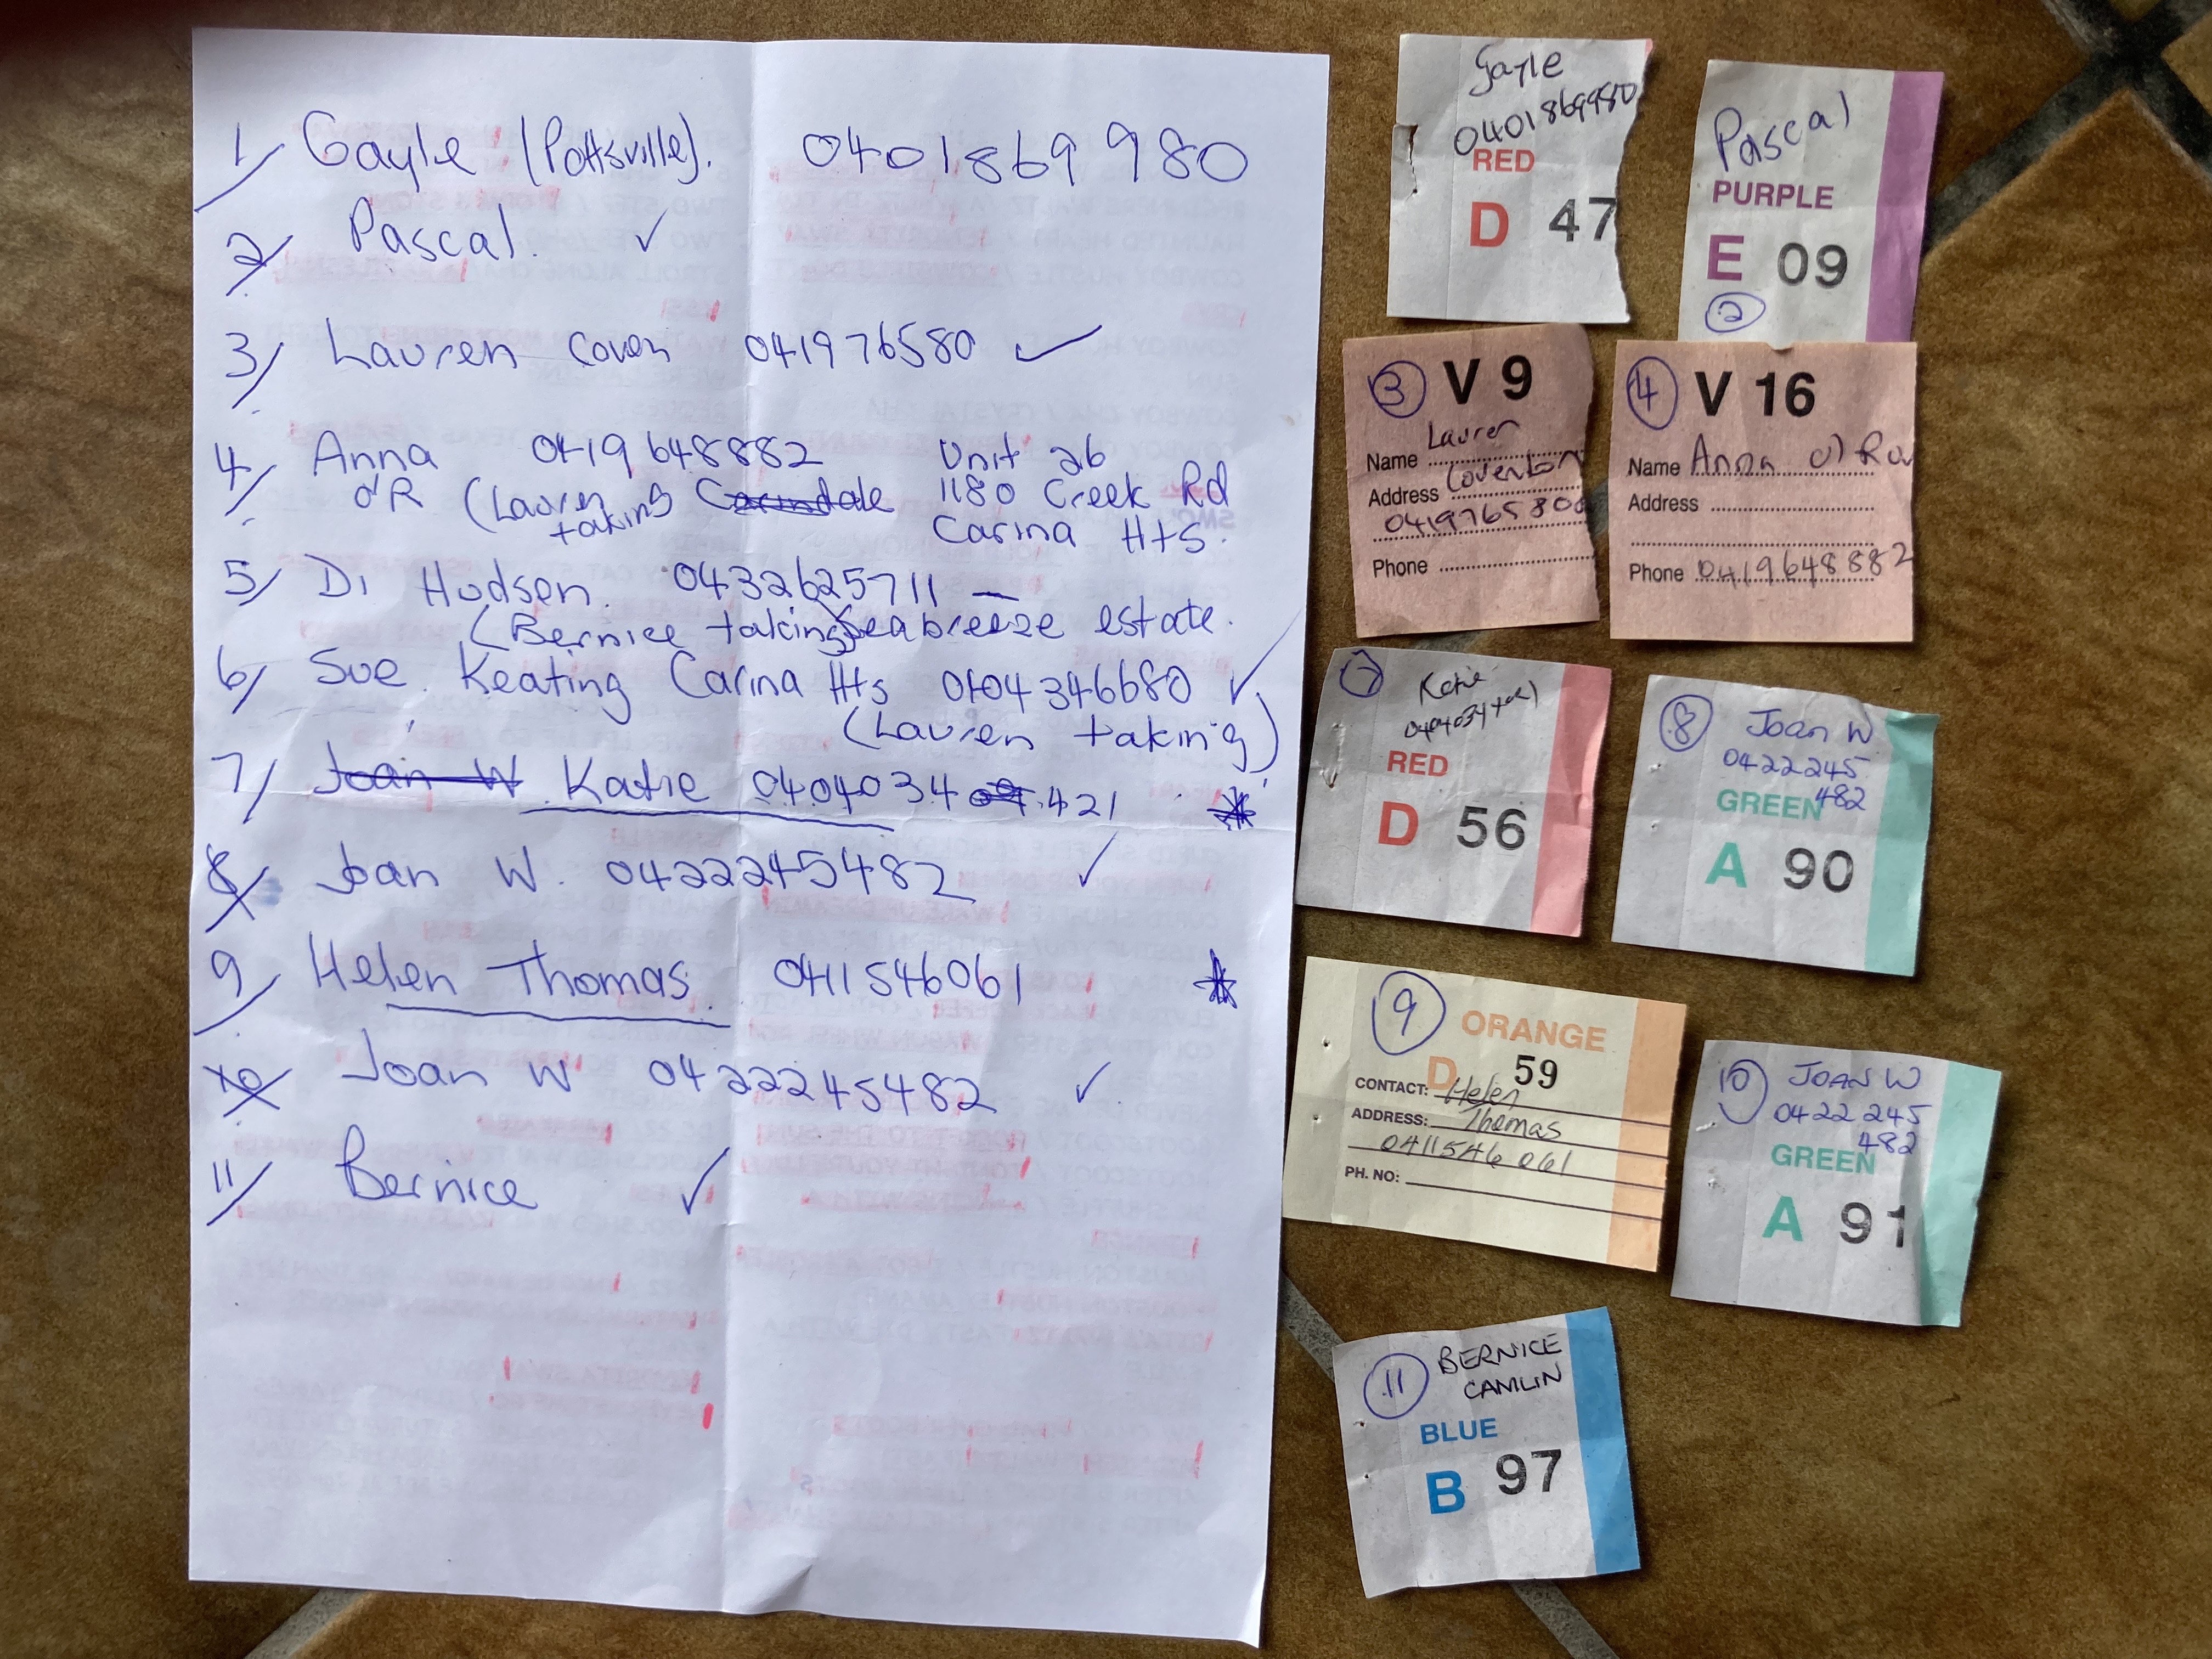 1/ Gayle (Pottsville). 0401869980
2/ Pascal. ✓
3/ Lauren Coven 041976580 ✓
4/ Anna 0419648882 Unit 26
O'R (Lauren taking Carindale 1180 Creek Rd
Carina Hts.
5/ Di Hudsen. 0432625711 —
(Bernice taking) Seabreeze estate.
6/ Sue Keating Carina Hts 0404346680 ✓
(Lauren taking)
7/ Joan W Katie 0404034 421 *
8/ Joan W. 0422245482 ✓
9/ Helen Thomas. 0411546061 *
10 Joan W 0422245482 ✓
11/ Bernice ✓
Gayle
0401869980
RED
D 47
Pascal
PURPLE
E 09
2
3 V 9
Lauren
Name
Address Coventon
0419765800
Phone
4 V 16
Name Anna O'
Address
Phone 0419648882
7 Katie
RED
D 56
8 Joan W
0422245
482
GREEN
A 90
9 ORANGE
D 59
CONTACT: Helen
ADDRESS: Thomas
0411546061
PH. NO:
10 JOAN W
0422 245
482
GREEN
A 91
11 BERNICE
CAMLIN
BLUE
B 97